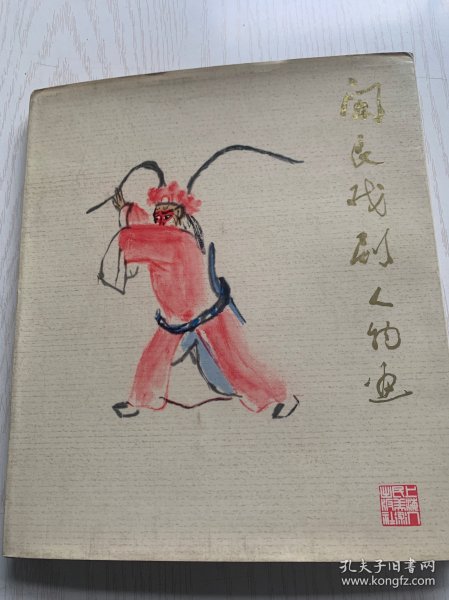 关良戏剧人物画
上海人民美术出版社
孔夫子旧书网
www.kongfz.com